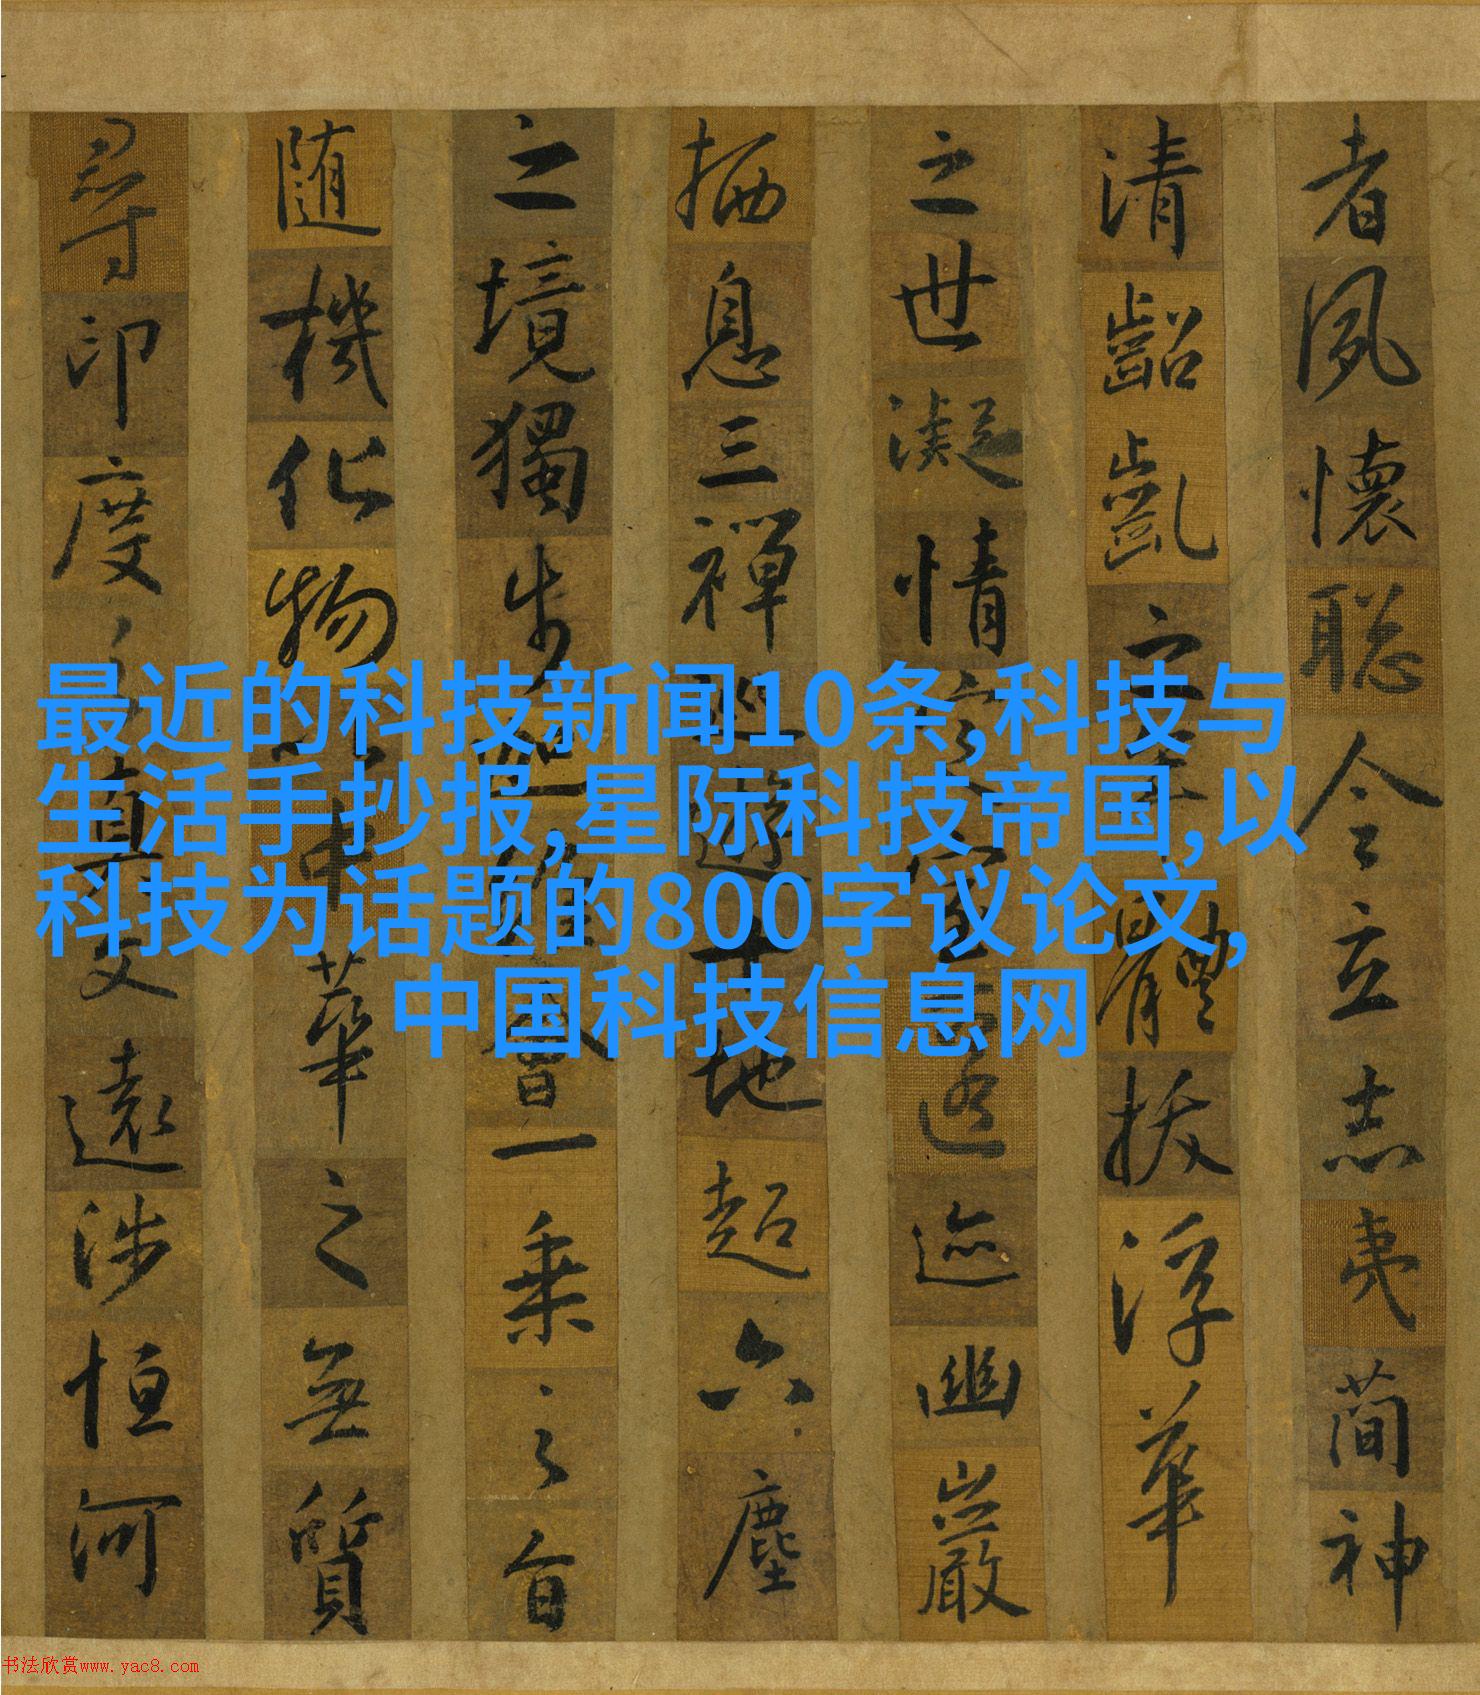 者夙懷聡令立志夷簡神
清齠齔之年體拔浮華
之世凝情定室匿迹幽巖
栖息三禪巡遊十地超六塵
之境獨步迦維會一乘之旨
随機化物以中華之無質
尋印度之真文遠涉恒河
最近的科技新闻10条,科技与
生活手抄报,星际科技帝国,以
科技为话题的800字议论文,
中国科技信息网
书法欣赏www.yac8.com